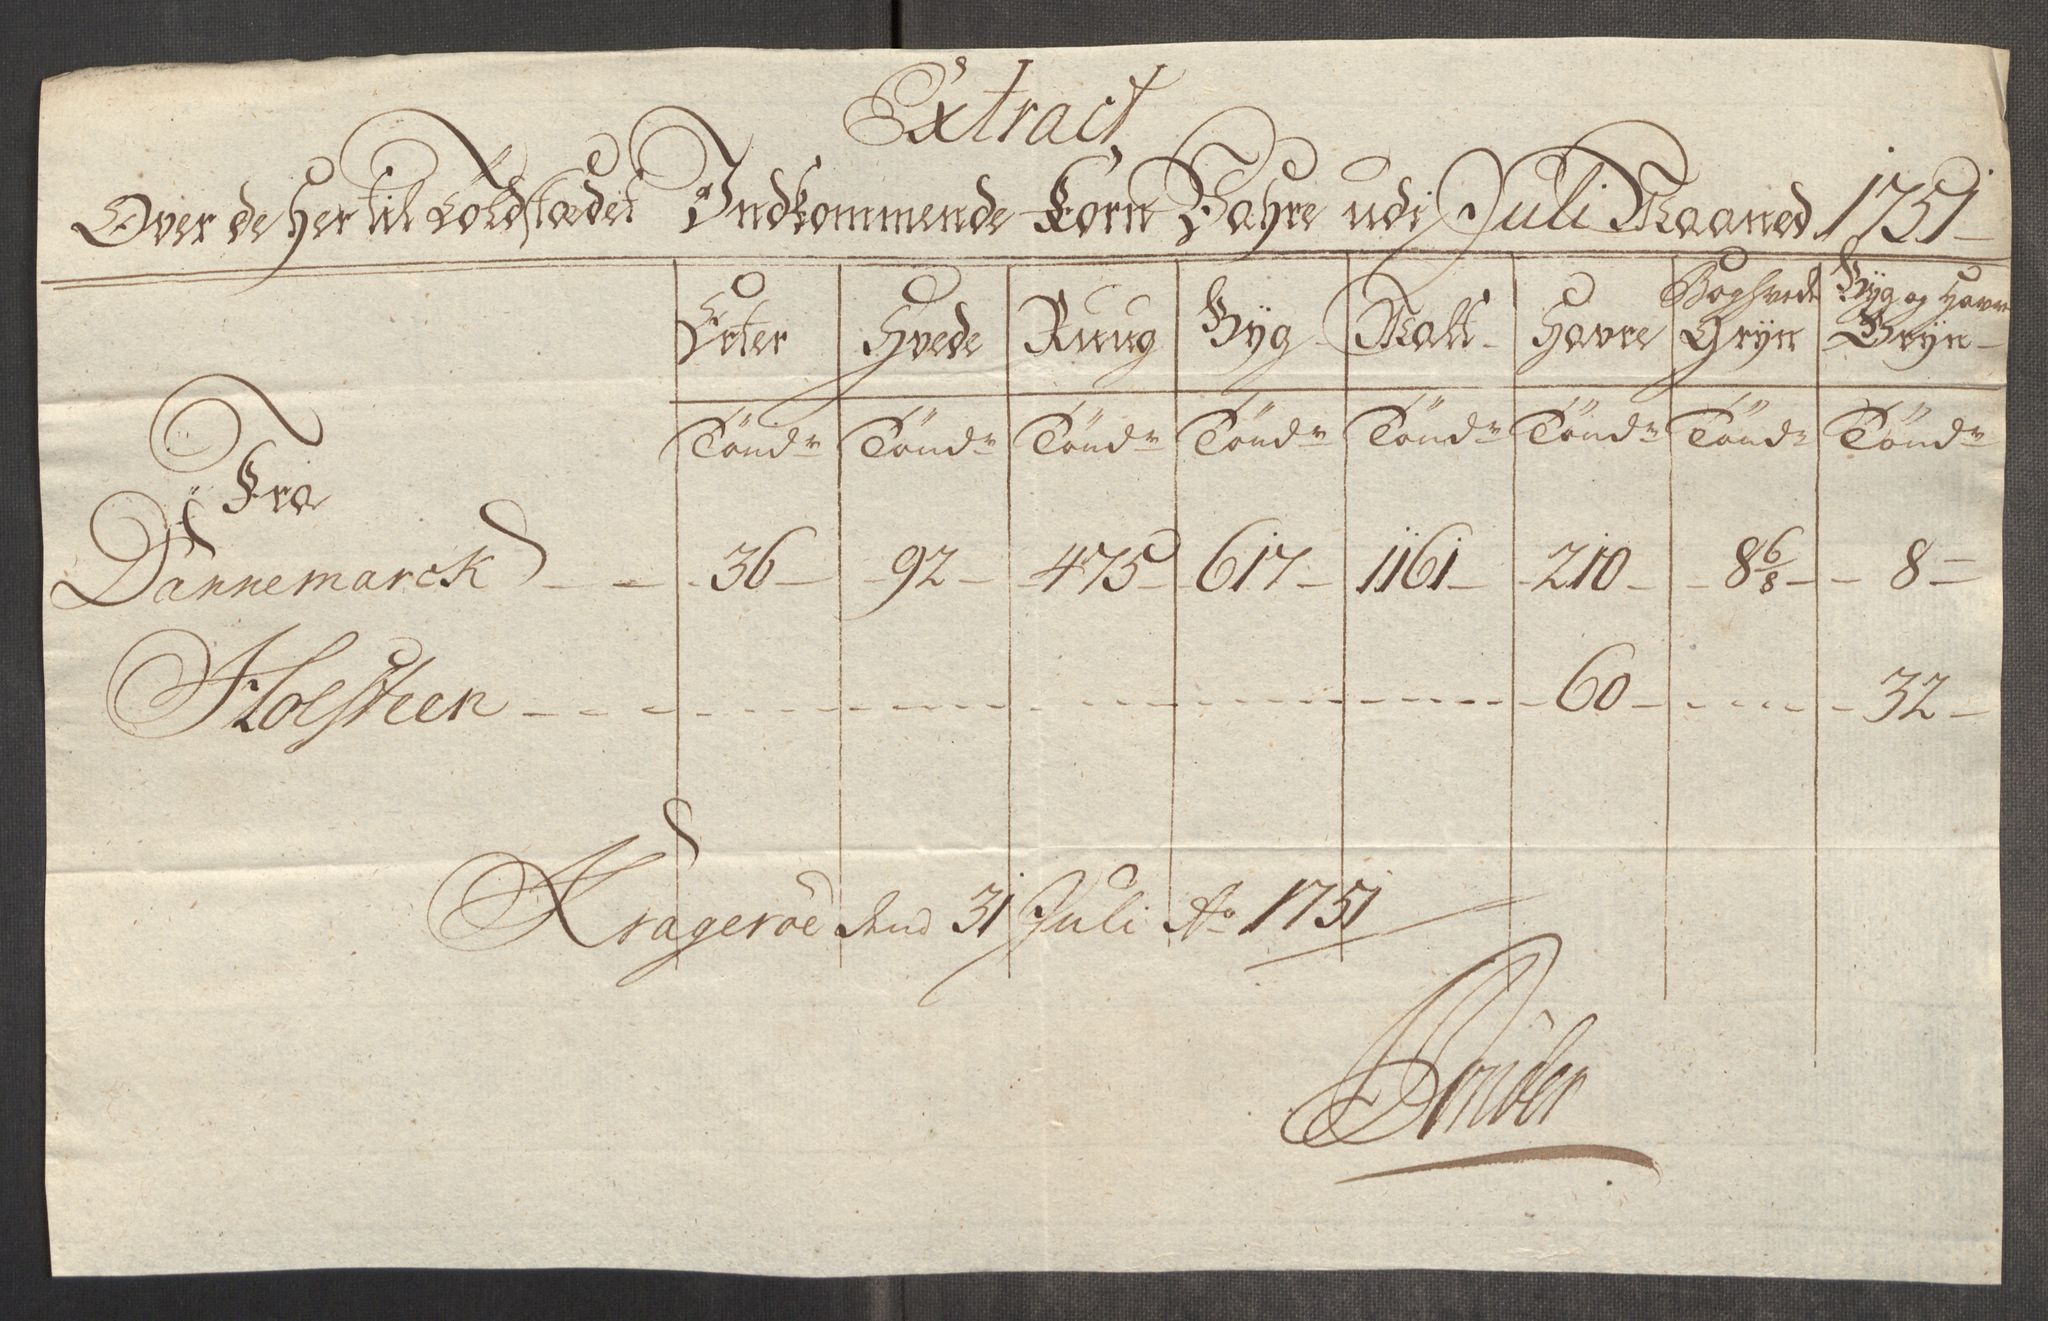 Extract,
Over de Her til Toldstædet Indkommende Korn Vahre udi Juli Maaned 1751
Erter Hvede Ruug Byg Malt Havre Boghvede Gryn Byg og Havre Gryn
Tönd. Tönd. Tönd. Tönd. Tönd. Tönd. Tönd. Tönd.
Fra
Dannemarck 36 92 475 617 1161 210 8 6/8 8
Holsteen 60 32
Krageröe den 31 Juli Ao 1751